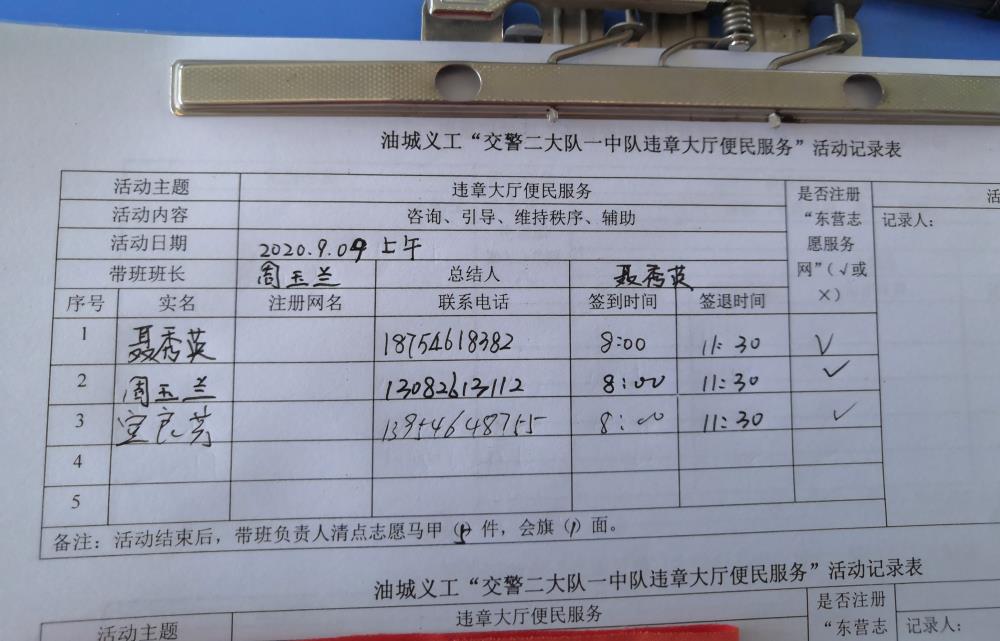 油城义工“交警二大队一中队违章大厅便民服务”活动记录表
活动主题 违章大厅便民服务 是否注册“东营志愿服务网”(√或×) 活
活动内容 咨询、引导、维持秩序、辅助 记录人:
活动日期 2020.9.09 上午
带班班长 周玉兰 总结人 聂秀英
序号 实名 注册网名 联系电话 签到时间 签退时间
1 聂秀英 18754618382 8:00 11:30 √
2 周玉兰 13082613112 8:00 11:30 √
3 良芳 13954648755 8:00 11:30 √
4
5
备注:活动结束后,带班负责人清点志愿马甲( )件,会旗(1)面。
油城义工“交警二大队一中队违章大厅便民服务”活动记录表
活动主题 违章大厅便民服务 是否注册“东营志 记录人: